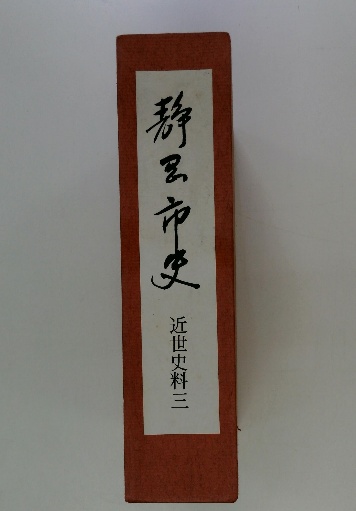 静岡市史
近世史料三